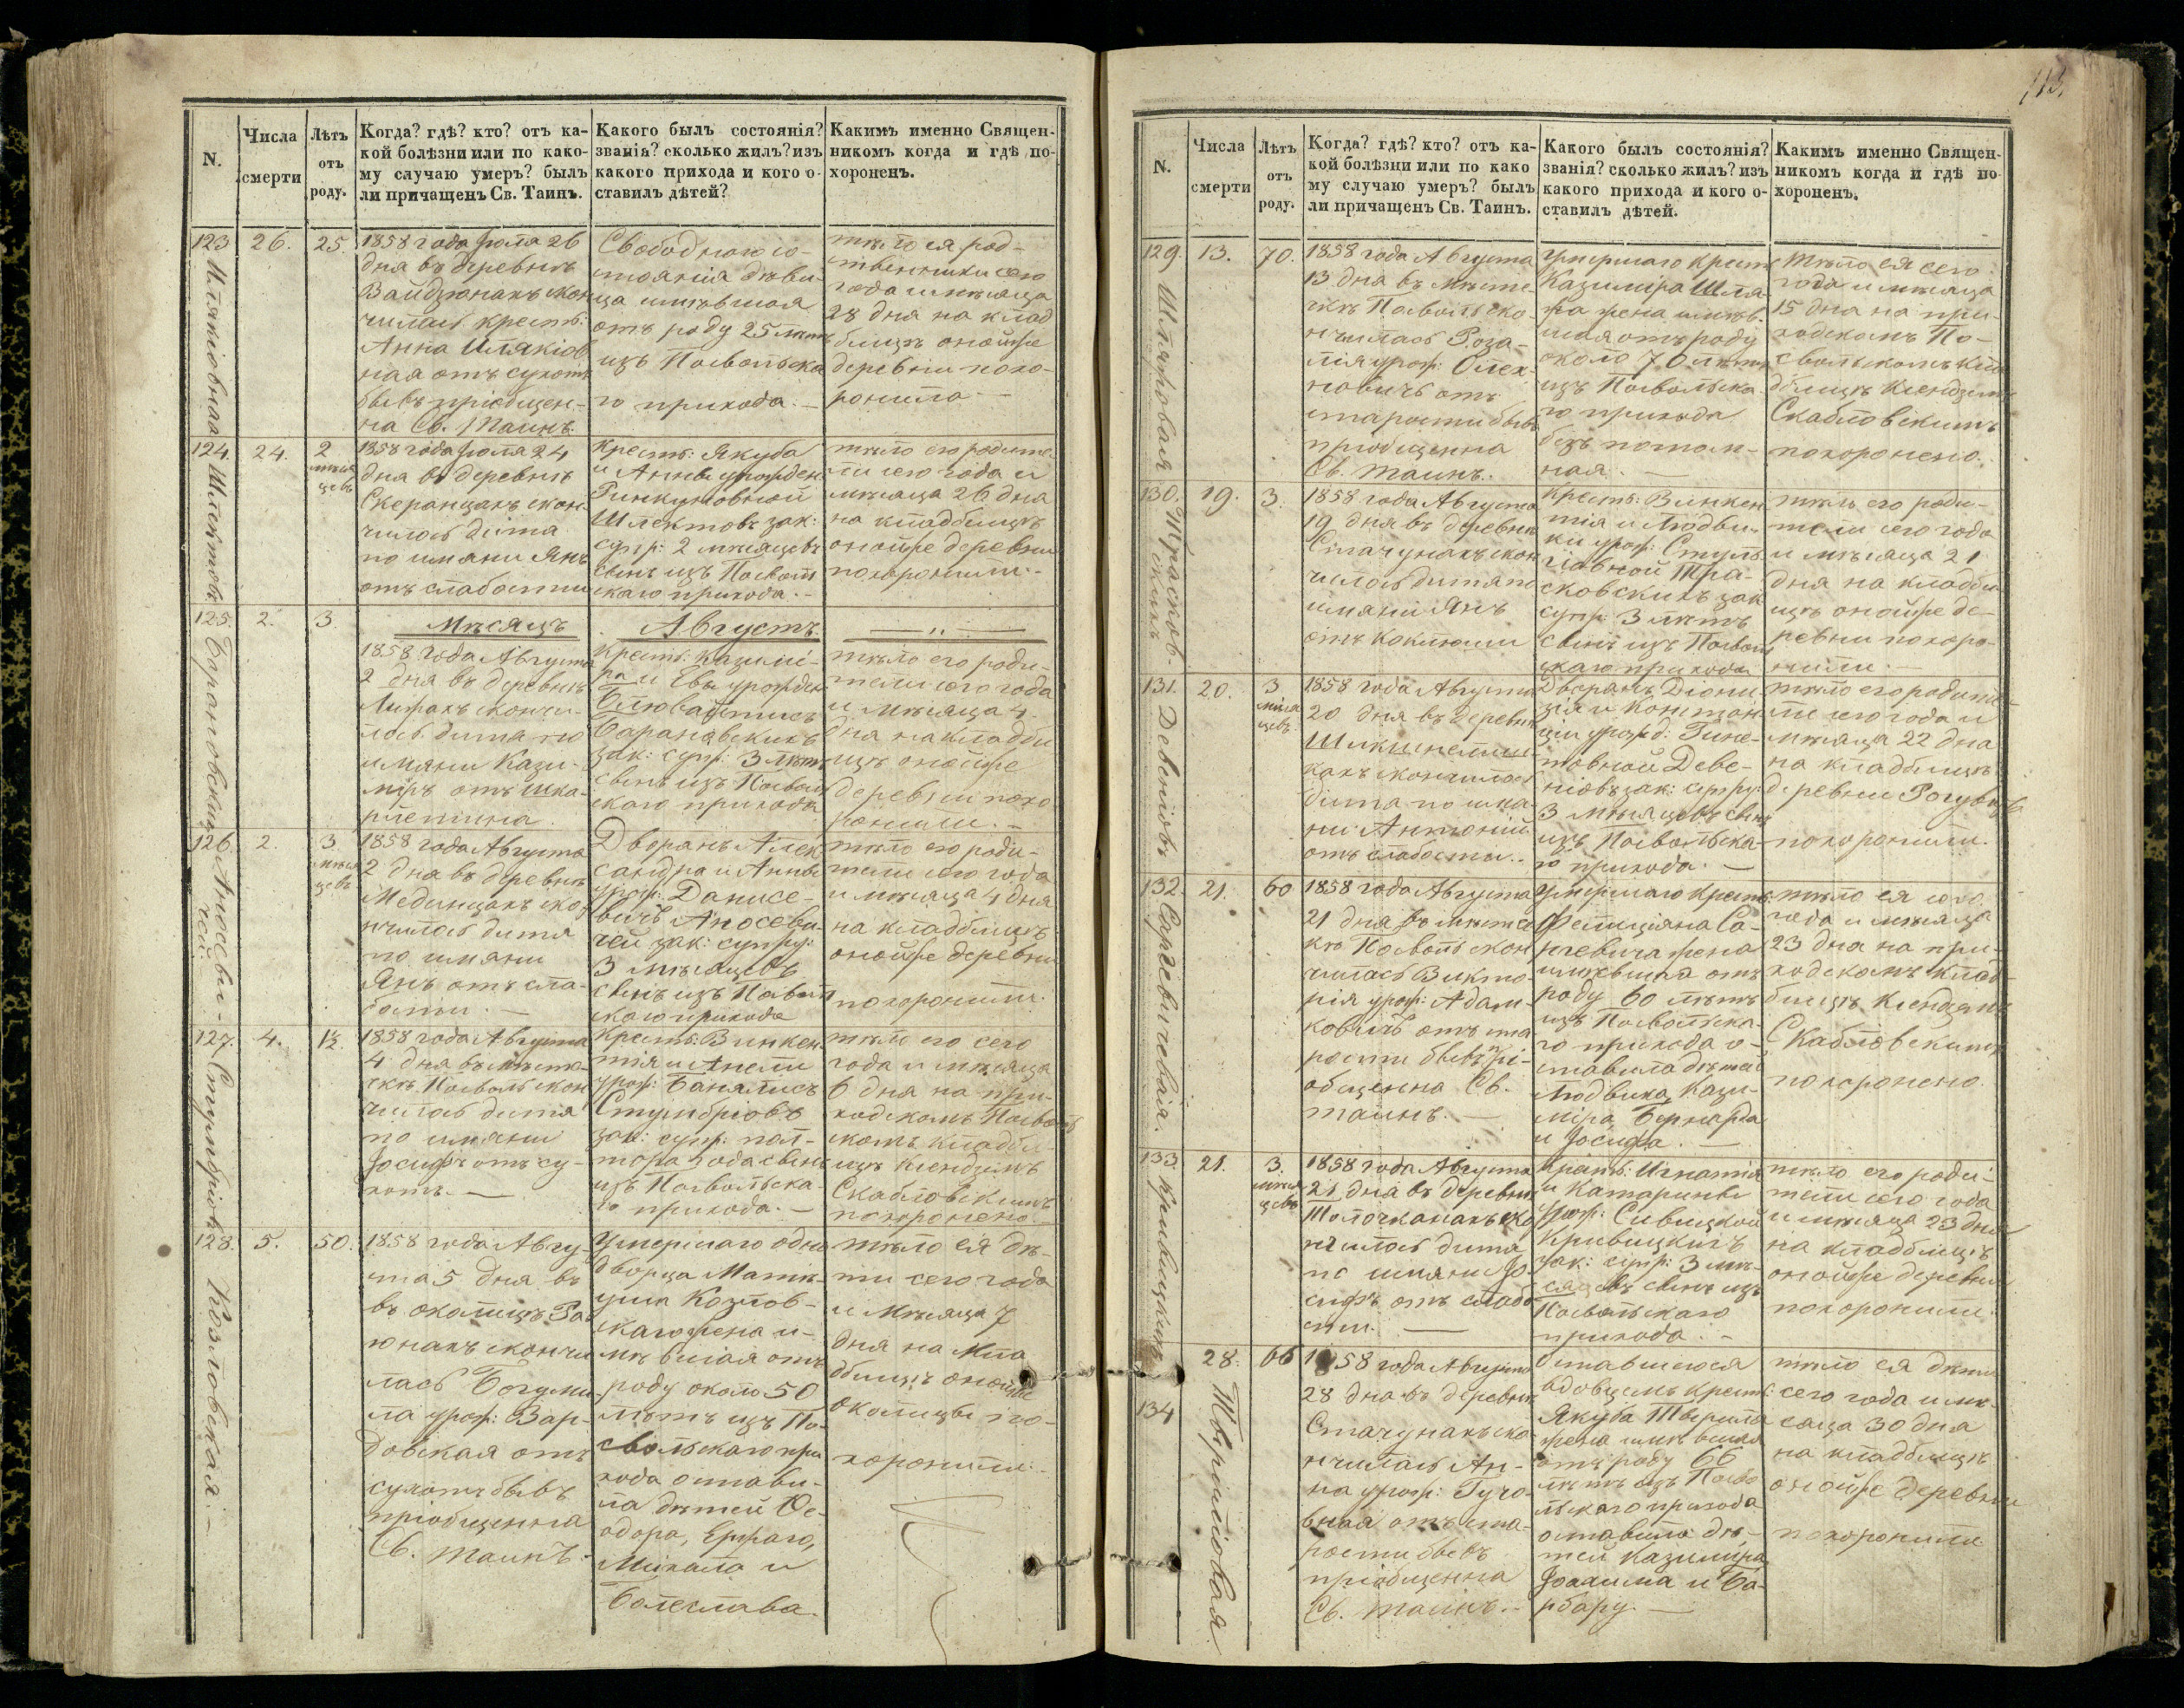 N.
Числа
смерти
Лѣтъ
отъ
роду.
Когда? гдѣ? кто? отъ ка-
кой болѣзни или по како-
му случаю умеръ? былъ
ли причащенъ Св. Таинъ.
Какого былъ состоянія?
званія? сколько жилъ? изъ
какого прихода и кого о-
ставилъ дѣтей?
Какимъ именно Священ-
никомъ когда и гдѣ по-
хороненъ.
123
26.
25.
1858 года Іюля 26
дня въ деревнѣ
скон
чилась крест:
Анна
ная отъ сухотъ
бывъ пріобщен-
на Св. Таинъ.
Свободнаго со-
стоянія дѣви-
ца имѣвшая
отъ роду 25 лѣтъ
изъ Посвольска
го прихода. —
тѣло ея род-
ственники сего
года и мѣсяца
28 дня на клад
бищѣ онойже
деревни похо-
ронило —
124.
24.
2
мѣся
цевъ
Шлектовъ
1858 года Іюля 24
дня въ деревнѣ
скон
чилось дитя
по имяни Янъ
отъ слабости
Крест: Якуба
и Анны урожден
Шлектовъ зак:
супр: 2 мѣсяцевъ
сынъ изъ Посволь
скаго прихода. —
тѣло его родите
ли сего года и
мѣсяца 26 дня
на кладбищѣ
онойже деревни
похоронили. -
125.
2.
3.
Барановскій
Мѣсяцъ
Августъ.
— " —
1858 года Августа
2 дня въ деревнѣ
сконч-
лось дитя по
имяни Кази-
міръ отъ шка-
рлетина.
Крест: Казимі-
ра и Евы урожден
Барановскихъ
зак: супр: 3 лѣтъ
сынъ изъ Посволь
скаго прихода
тѣло его роди-
тели сего года
и мѣсяца 4
дня на кладби
щѣ онойже
деревни похо
ронили. —
126.
2.
3.
мѣся
цевъ
1858 года Августа
2 дня въ деревнѣ
ско
нчилось дитя
по имяни
Янъ отъ сла-
бости. —
Дворянъ Алек
сандра и Анны
урож: Данисе-
вичъ Аносеви-
чей зак: супру:
3 мѣсяцевъ
сынъ изъ Посволь
скаго прихода
тѣло его роди-
тели сего года
и мѣсяца 4 дня
на кладбищѣ
онойже деревни
похоронили.
127.
4.
1½.
Стумбріовъ
1858 года Августа
4 дня въ мѣсте-
чкѣ Посволь скон
чилось дитя
по имяни
Іосифъ отъ су-
хотъ. —
Крест: Викен
тія и Анели
урож:
Стумбріовъ
зак: супр: пол-
тора года сынъ
изъ Посвольска-
го прихода. —
тѣло его сего
года и мѣсяца
6 дня на при-
ходскомъ Посволь
скомъ кладби-
щѣ Ксендземъ
Скабловскимъ
похоронено.
128.
5.
50.
Козловская. —
1858 года Авгу-
ста 5 дня въ
въ околицѣ
сконч
лась Богуми-
ла урож:
отъ
сухотъ бывъ
пріобщенна
Св. Таинъ.
Умершаго одно
дворца Матѣ-
уша Козлов-
скаго жена и-
мѣвшая отъ
роду около 50
лѣтъ изъ По-
свольскаго при
хода остави-
ла дѣтей Ѳе-
одора,
Михала и
Болеслава.
тѣло ея дѣ-
ти сего года
и мѣсяца 7
дня на кла
дбищѣ онойже
околицы по-
хоронили.
113.
N.
Числа
смерти
Лѣтъ
отъ
роду.
Когда? гдѣ? кто? отъ ка-
кой болѣзни или по како
му случаю умеръ? былъ
ли причащенъ Св. Таинъ.
Какого былъ состоянія?
званія? сколько жилъ? изъ
какого прихода и кого о-
ставилъ дѣтей.
Какимъ именно Священ-
никомъ когда и гдѣ по
хороненъ.
129.
13.
70.
1858 года Августа
13 дня въ мѣсте-
чкѣ Посволь ско-
нчилась Роза-
лія урож: Олех-
новичъ отъ
старости бывъ
пріобщенна
Св. таинъ.
Умершаго крест
Казиміра
жена имѣв-
шая отъ роду
около 70 лѣтъ
изъ Посвольска
го прихода
безъ потом-
ная. —
тѣло ея сего
года и мѣсяца
15 дня на при-
ходскомъ По-
свольскомъ кла
дбищѣ Ксендземъ
Скабловскимъ
похоронено.
130.
19.
3.
Трасков-
скихъ
1858 года Августа
19 дня въ деревнѣ
Стачунахъ скон
чилось дитя по
имяни Янъ
отъ коклюши
Крест: Винкен
тія и Людви-
ки урож:
Тра-
сковскихъ зак
супр: 3 лѣтъ
сынъ изъ Посволь
скаго прихода
тѣло его роди-
тели сего года
и мѣсяца 21
дня на кладби
щѣ онойже де-
ревни похоро-
нили. —
131.
20.
3
мѣся
цевъ.
Девеніовъ
1858 года Августа
20 дня въ деревнѣ
скончилось
дитя по имя-
ни Антоній
отъ слабости.
Дворянъ Діони
зія и Констан
ціи урожд: Гине-
товной Деве-
ніовъ зак: супру:
3 мѣсяцевъ сынъ
изъ Посвольска-
го прихода. —
тѣло его родите
ли сего года и
мѣсяца 22 дня
на кладбищѣ
деревни
похоронили.
132.
21.
60
Саргевичевая.
1858 года Августа
21 дня въ мѣсте
чкѣ Посволь скон
чилась Викто-
рія урож: Адам-
ковичъ отъ ста
рости бывъ прі-
общенна Св.
таинъ. —
Умершаго крест
Фелиціяна Са-
ргевича жена
имѣвшая отъ
роду 60 лѣтъ
изъ Посвольска-
го прихода о-
ставила дѣтей
Людвика, Кази-
міра, Бернарда
и Іосифа. —
тѣло ея сего
года и мѣсяца
23 дня на при-
ходскомъ клад-
бищѣ Ксендземъ
Скабловскимъ
похоронено.
133.
21.
3.
мѣся
цевъ
Кривицкихъ
1858 года Августа
21 дня въ деревнѣ
ско
нчилось дитя
по имяни Іо-
сифъ отъ слабо
сти. —
Крест: Игнатія
и Катарины
урож: Сивицкой
Кривицкихъ
зак: супр: 3 мѣ-
сяцевъ сынъ изъ
Посвольскаго
прихода. —
тѣло его роди-
тели сего года
и мѣсяца 23 дня
на кладбищѣ
онойже деревни
похоронили.
134
28.
66
1858 года Августа
28 дня въ деревнѣ
Стачунахъ ско-
нчилась Ан-
на урож:
отъ ста-
рости бывъ
пріобщенна
Св. таинъ. —
Оставшегося
вдовцемъ крест:
Якуба
жена имѣвшая
отъ роду 66
лѣтъ изъ Посво
льскаго прихода
оставила дѣ-
тей Казиміра,
Іоахима и Ба-
рбару. —
тѣло ея дѣти
сего года и мѣ-
сяца 30 дня
на кладбищѣ
онойже деревни
похоронили